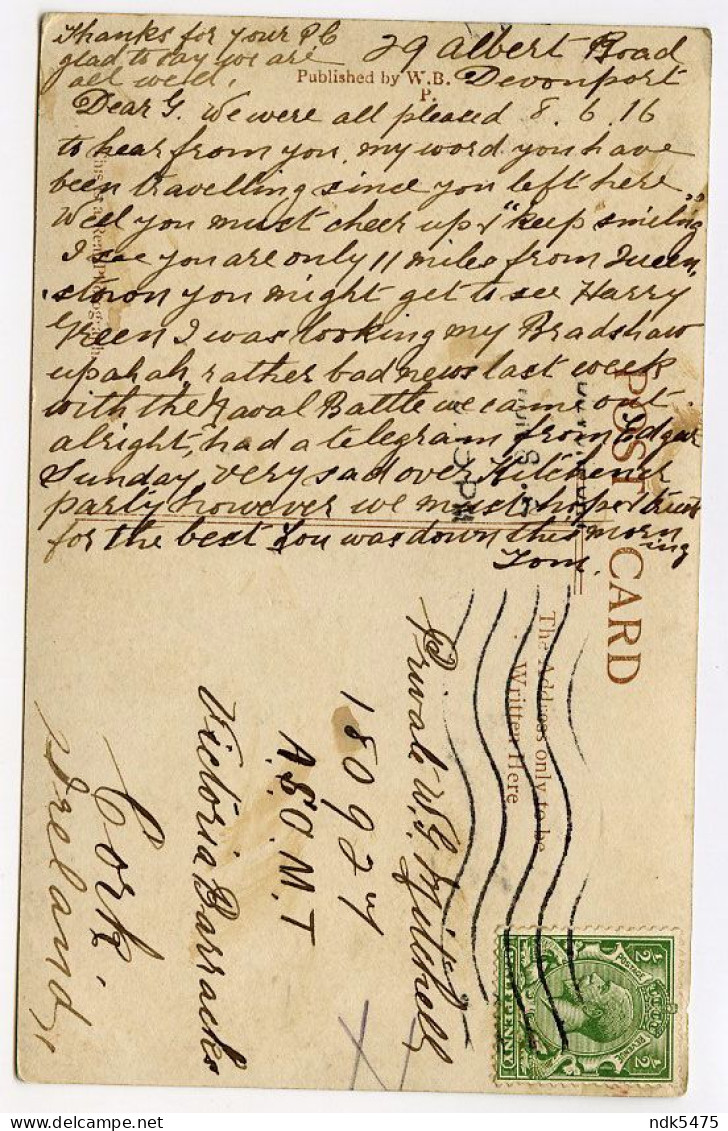 Thanks for your PC
glad to say we are
all well.
29 Albert Road
Devonport
8.6.16
Published by W.B.
P.
Dear G. We were all pleased
to hear from you, my word you have
been travelling since you left here
Well you must cheer up & "keep smiling"
I see you are only 11 miles from Queens
stown you might get to see Harry
Green I was looking my Bradshaw
up ahah, rather bad news last week
with the Naval Battle we came out
alright, had a telegram from Edgar
Sunday very sad over Kitchener
party however we must hope & trust
for the best You was down this morning
Tom.
POST CARD
The Address only to be
Written Here
Private W. G. Mitchell
180927
A.S.O.M.T
Victoria Barracks
Cork.
Ireland,
POSTAGE
REVENUE
1/2 1/2
HALF PENNY
ndk5475